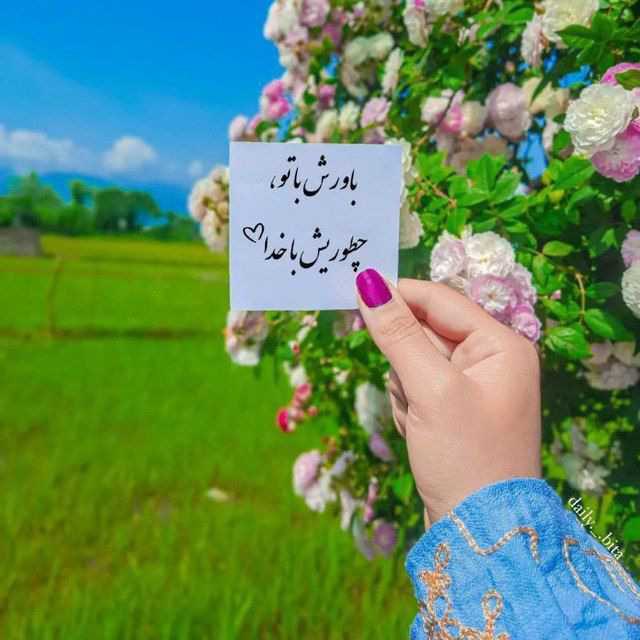 باورش با تو،
چطوریش با خدا
daily_.bita